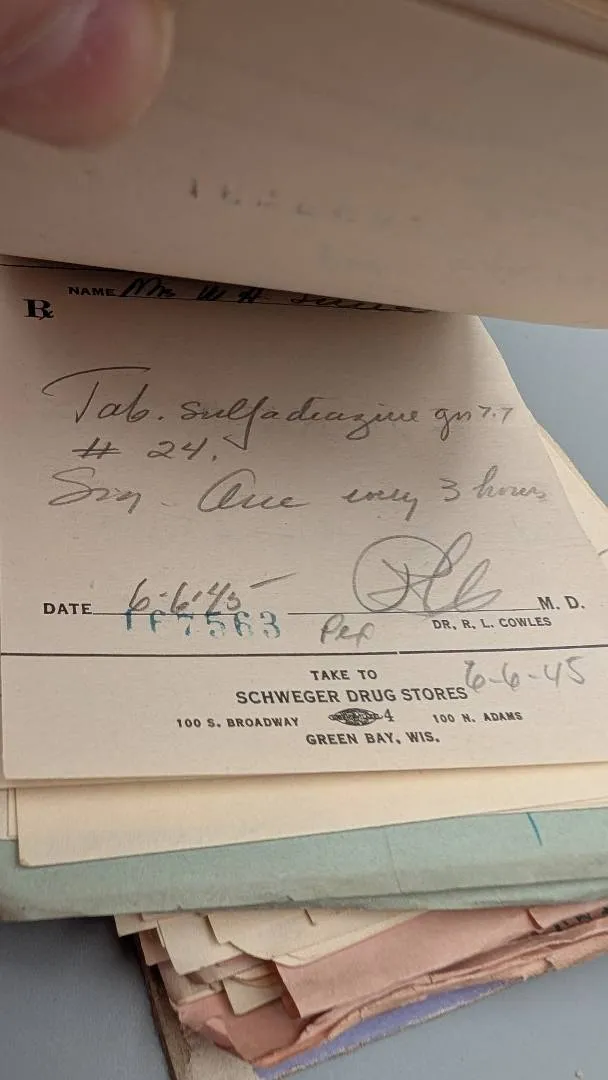 NAME Mrs W H
Rx
Tab. Sulfadiazine grs 7.7
# 24.
Sig - One every 3 hours
DATE 6-6-45 M. D.
167563 DR. R. L. COWLES
TAKE TO
SCHWEGER DRUG STORES 6-6-45
100 S. BROADWAY 4 100 N. ADAMS
GREEN BAY, WIS.